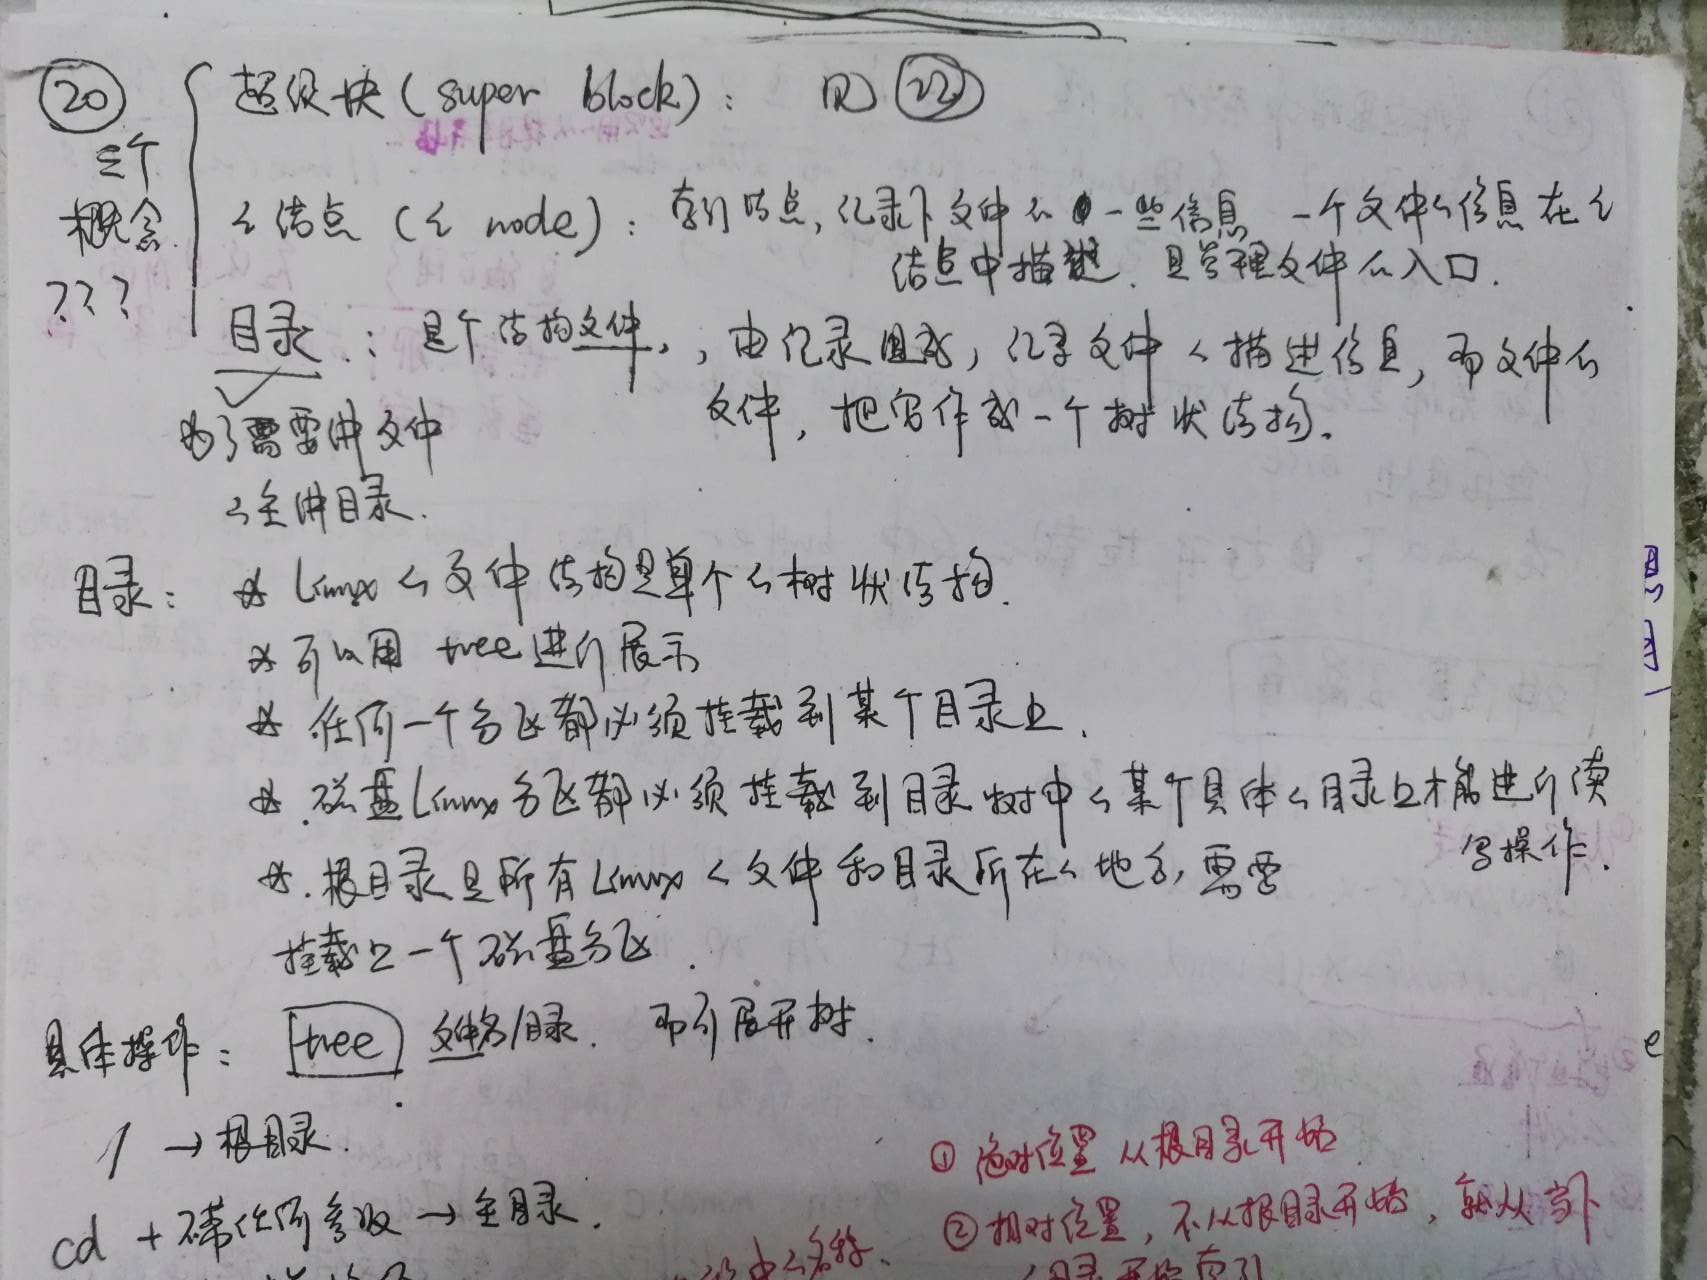 ⑳ 超级块(super block): 见 ㉒
三个
概念
???
i结点(i node): 索引结点,记录下文件的一些信息 一个文件的信息在i
结点中描述. 是管理文件的入口.
目录.: 是个结构文件,,由记录组成,记录文件的描述信息,而文件的
文件,把它作成一个树状结构.
为了需要讲文件
的全讲目录.
目录: ☆ Linux的文件结构是单个的树状结构.
☆ 可以用 tree进行展示
☆ 任何一个分区都必须挂载到某个目录上.
☆. 磁盘Linux分区都必须挂载到目录树中的某个具体的目录上才能进行读
写操作.
☆. 根目录是所有Linux的文件和目录所在的地方,需要
挂载上一个磁盘分区.
具体操作: tree 文件名/目录. 即可展开树.
/ → 根目录.
cd + 不带任何参数 → 主目录.
① 绝对位置 从根目录开始
② 相对位置,不从根目录开始,就从当下
的名称.
目录开始索引